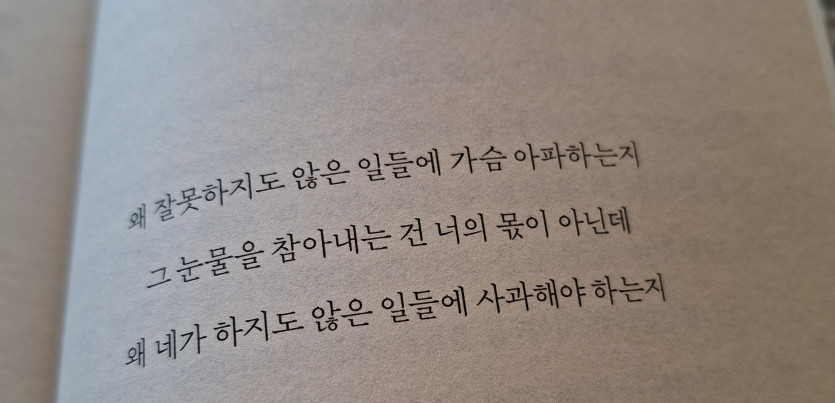 왜 잘못하지도 않은 일들에 가슴 아파하는지
그 눈물을 참아내는 건 너의 몫이 아닌데
왜 네가 하지도 않은 일들에 사과해야 하는지